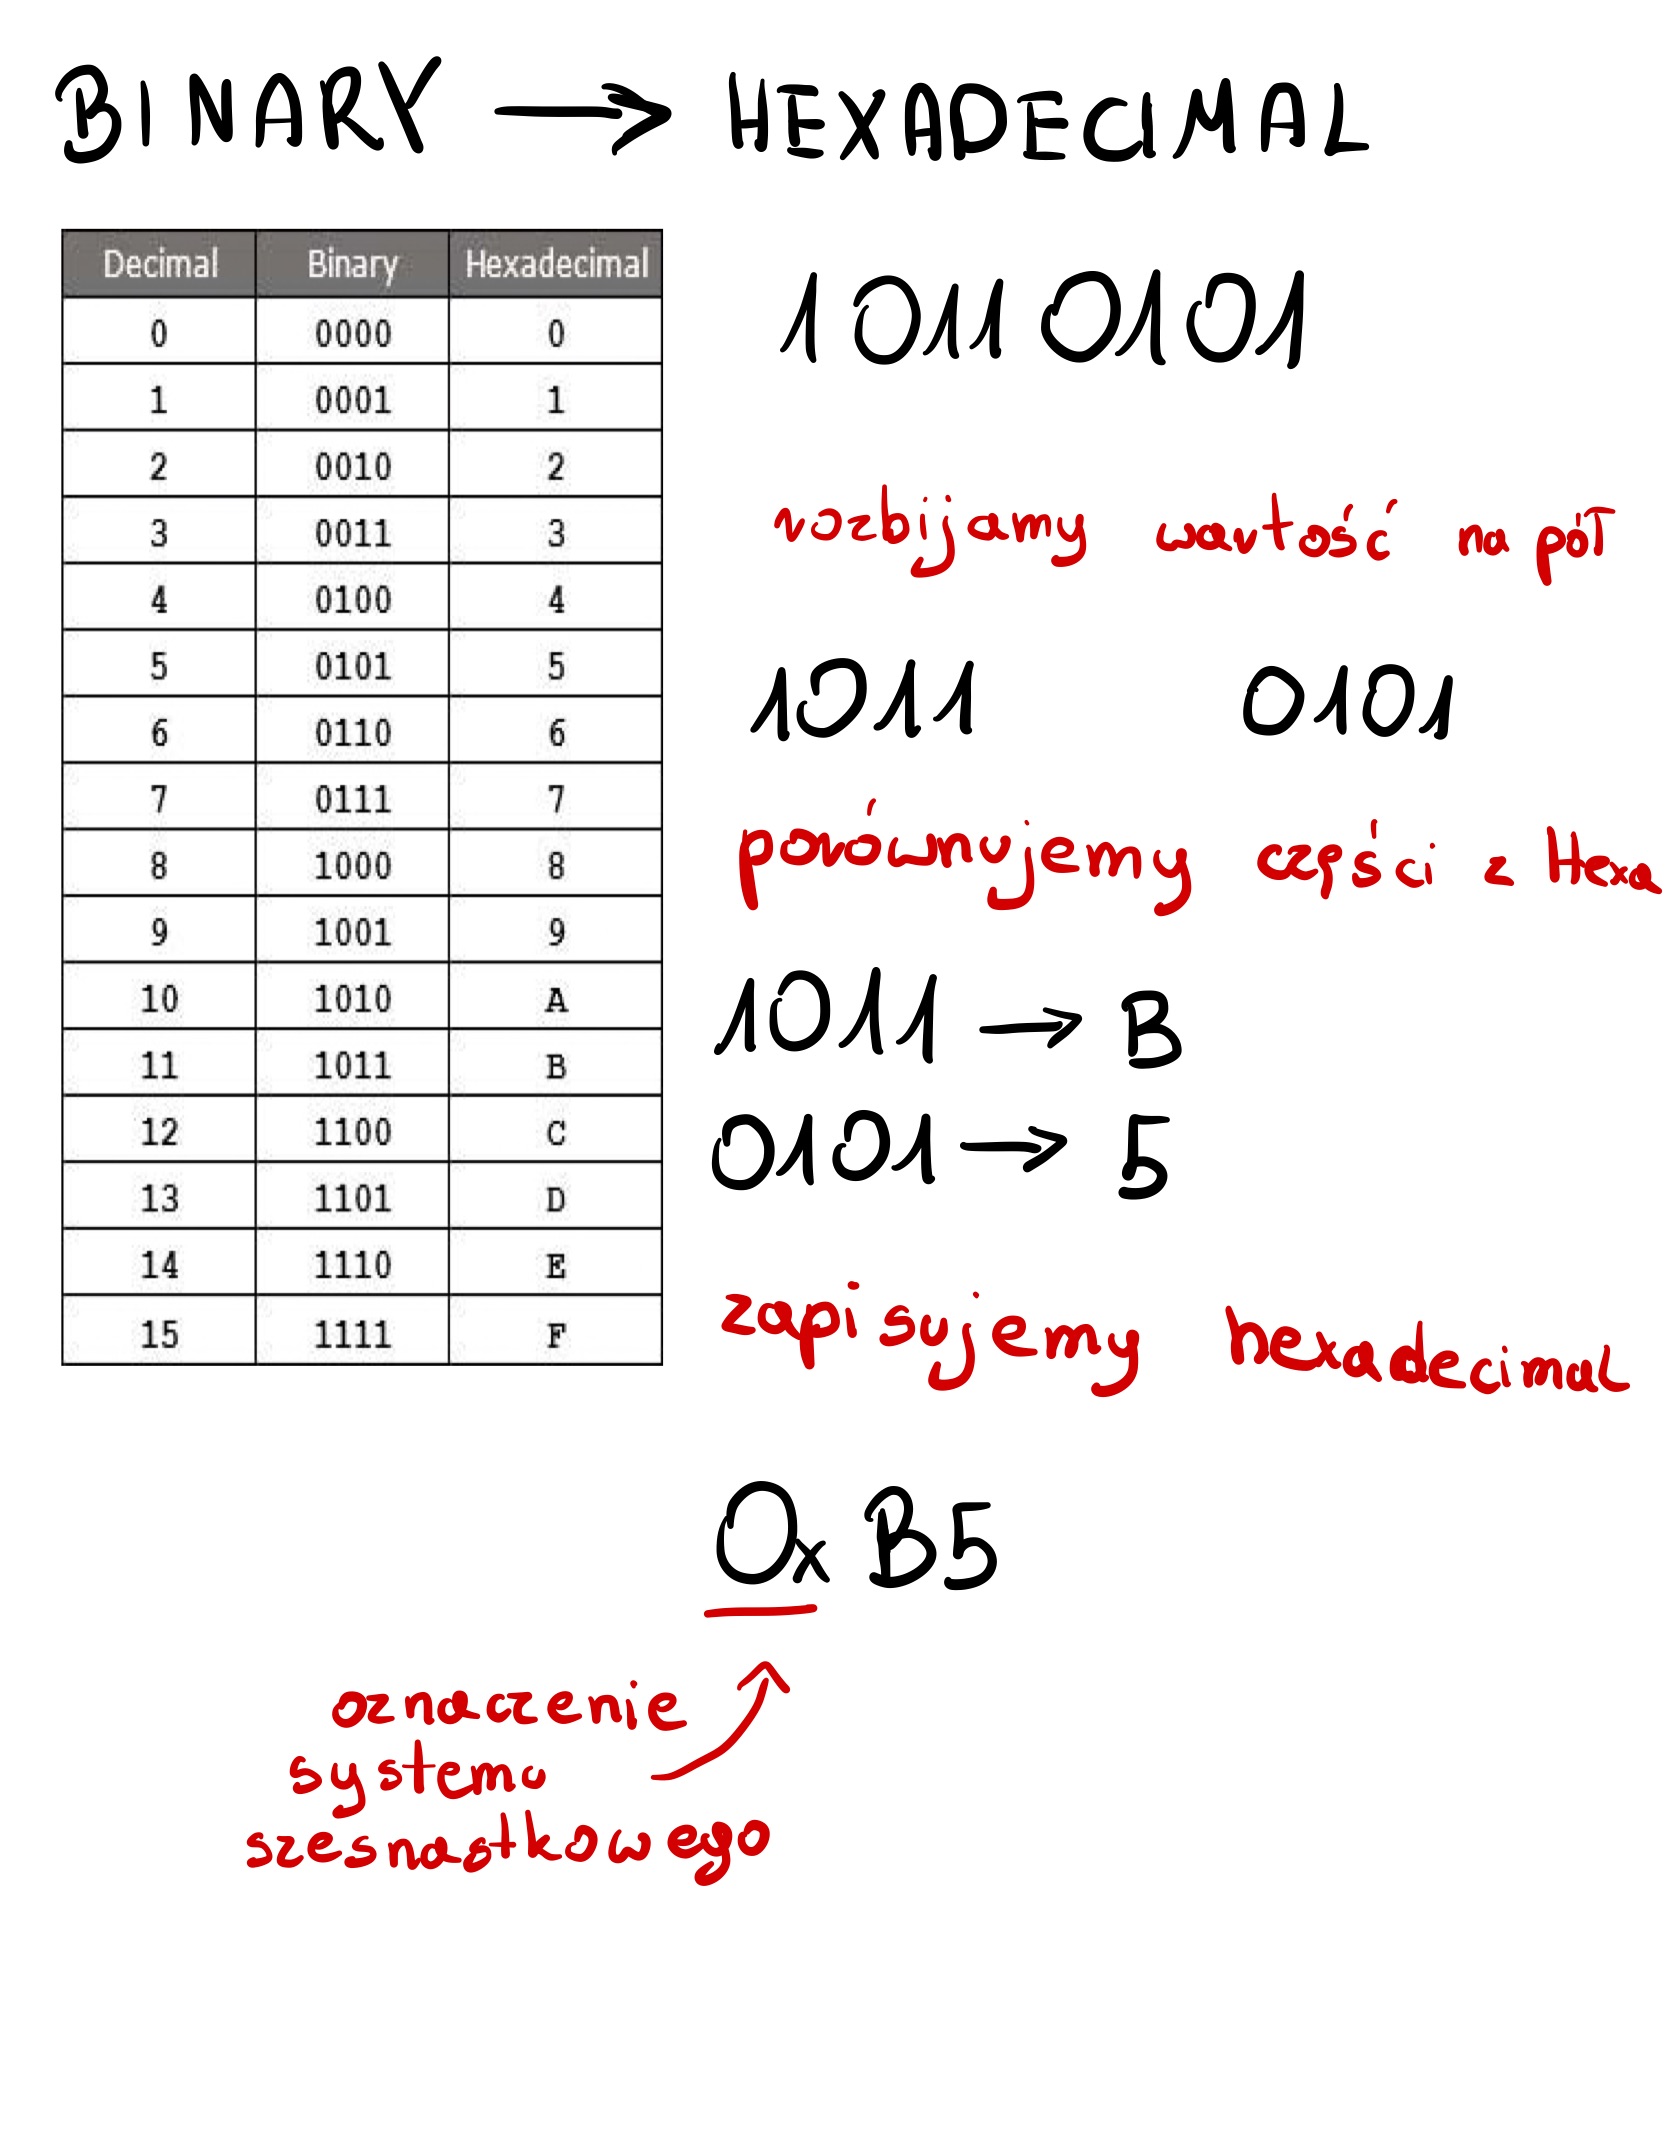 BINARY → HEXADECIMAL
Decimal Binary Hexadecimal
0 0000 0
1 0001 1
2 0010 2
3 0011 3
4 0100 4
5 0101 5
6 0110 6
7 0111 7
8 1000 8
9 1001 9
10 1010 A
11 1011 B
12 1100 C
13 1101 D
14 1110 E
15 1111 F
1011 0101
rozbijamy wartość na pół
1011 0101
porównujemy części z Hexa
1011 → B
0101 → 5
zapisujemy hexadecimal
0x B5
oznaczenie
systemu
szesnastkowego